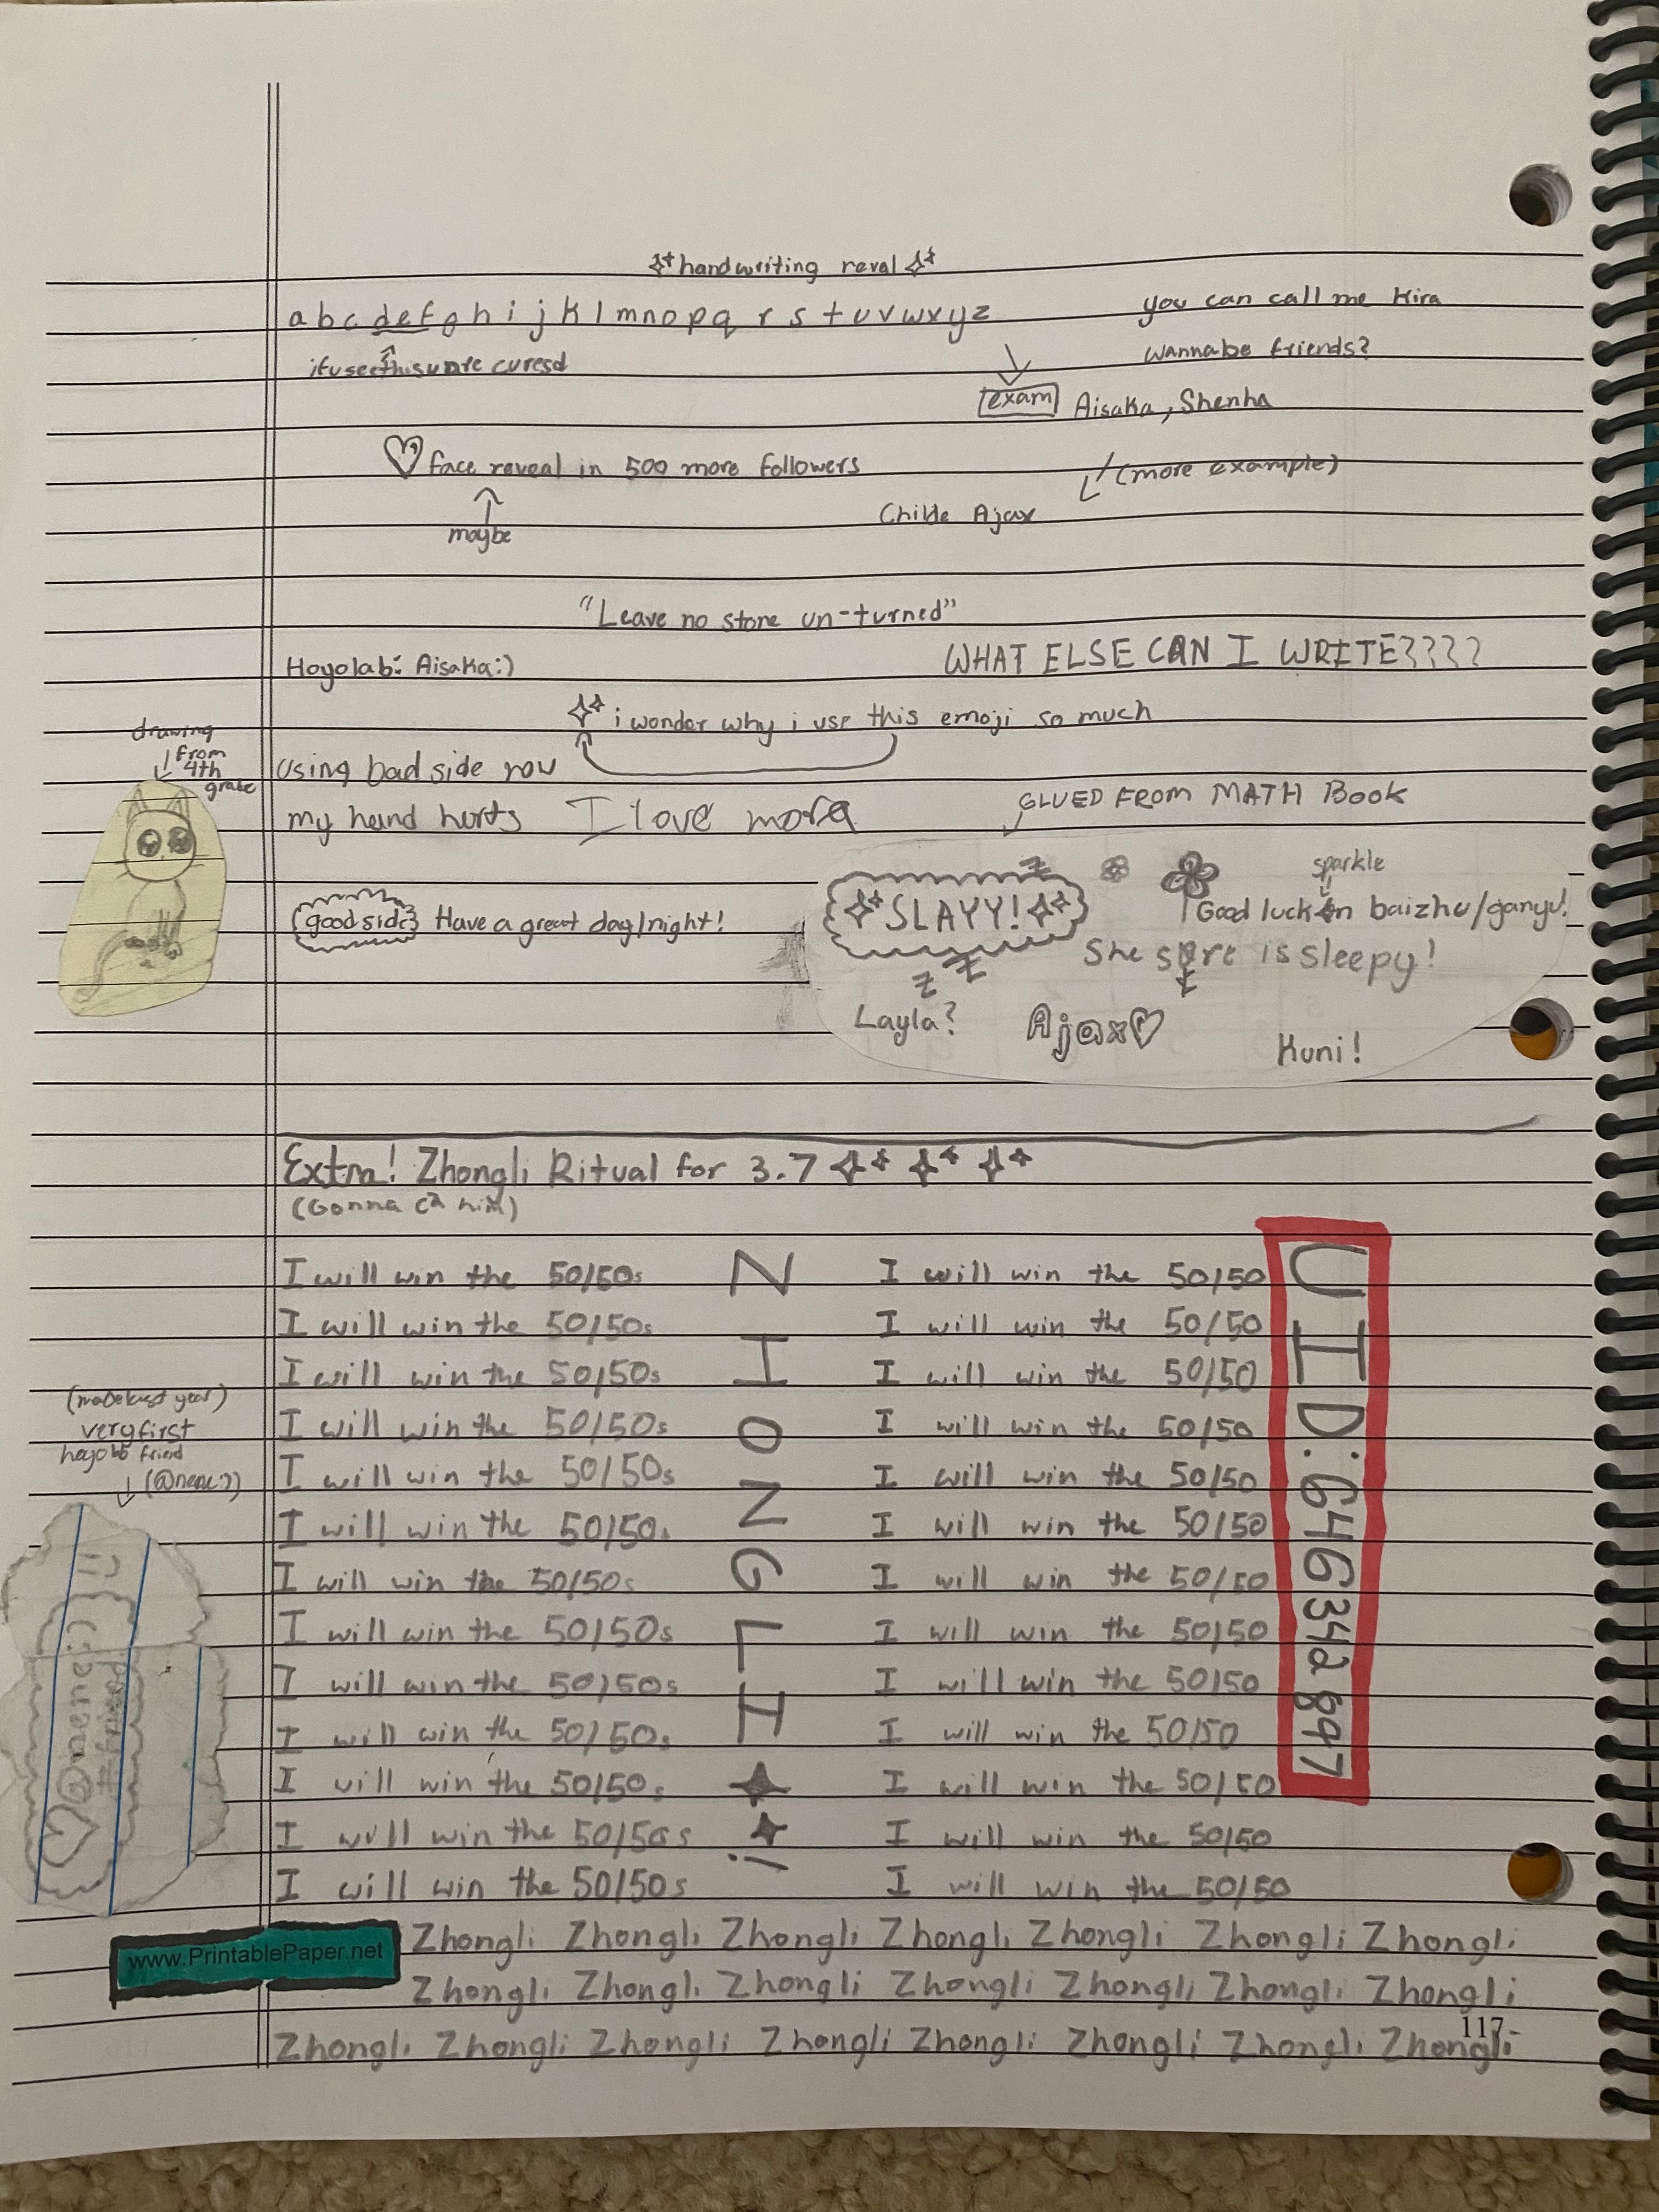 handwriting reval
a b c d e f g h i j k l m n o p q r s t u v w x y z
you can call me Kira
ifuseethisuare curesd
wannabe friends?
exam Aisaka, Shenha
face reveal in 500 more followers
(more example)
maybe
Childe Ajax
"Leave no stone un-turned"
Hoyolab: Aisaka:)
WHAT ELSE CAN I WRITE????
i wonder why i use this emoji so much
drawing
from
4th
grade
using bad side now
my hand hurts I love mora
GLUED FROM MATH BOOK
good side Have a great day/night!
SLAYY!
sparkle
Good luck on baizhu/ganyu!
She sure is sleepy!
z z z
Layla?
Ajax
Kuni!
Extra! Zhongli Ritual for 3.7
(Gonna him)
I will win the 50/50s I will win the 50/50
I will win the 50/50s I will win the 50/50
I will win the 50/50s I will win the 50/50
I will win the 50/50s I will win the 50/50
I will win the 50/50s I will win the 50/50
I will win the 50/50s I will win the 50/50
I will win the 50/50s I will win the 50/50
I will win the 50/50s I will win the 50/50
I will win the 50/50s I will win the 50/50
I will win the 50/50s I will win the 50/50
I will win the 50/50s I will win the 50/50
I will win the 50/50s I will win the 50/50
I will win the 50/50s I will win the 50/50
NIONGLH!
UID:646342897
(made last year)
very first
friend
(@nene:))
@nene:)
www.PrintablePaper.net
Zhongli Zhongli Zhongli Zhongli Zhongli Zhongli Zhongli
Zhongli Zhongli Zhongli Zhongli Zhongli Zhongli Zhongli
Zhongli Zhongli Zhongli Zhongli Zhongli Zhongli Zhongli Zhongli
117